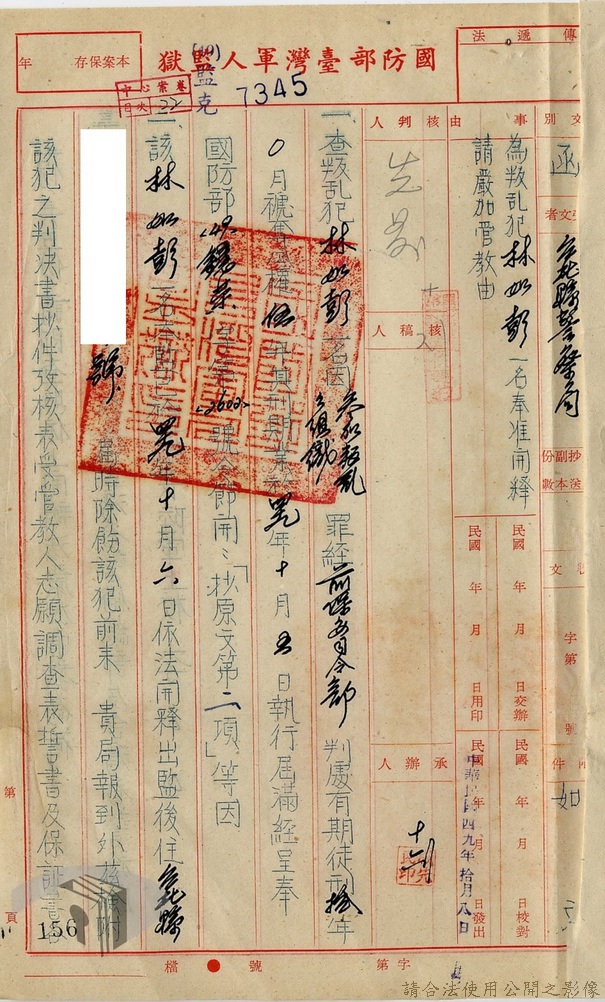 國防部臺灣軍人監獄
本案保存 年
傳遞法
(49)監克
7345
檔案中心
目次 22
文別 函
受文者 縣警察局
抄副本份數
事由
為叛乱犯林如彭一名奉准開釋
請嚴加管教由
核判人
核稿人
承辦人
民國 年 月 日交辦
民國 年 月 日用印
民國 年 月 日校對
中華民國四九年拾月八日
民國 年 月 日發出
字第 號
附件 如文
一、查叛乱犯林如彭一名因參加叛乱組織罪經前保安司令部判處有期徒刑拾年
〇月褫奪公權伍年其刑期業於 年十月五日執行屆滿經呈奉
國防部 字第2602號令節開:「抄原文第二項」等因
二、該林如彭一名奉飭已於 年十月六日依法開釋出監後住 縣
號 當時除飭該犯前來 貴局報到外茲檢附
該犯之判決書抄件攷核表受管教人志願調查表誓書及保証書
第 頁
156
檔 號 字第
請合法使用公開之影像